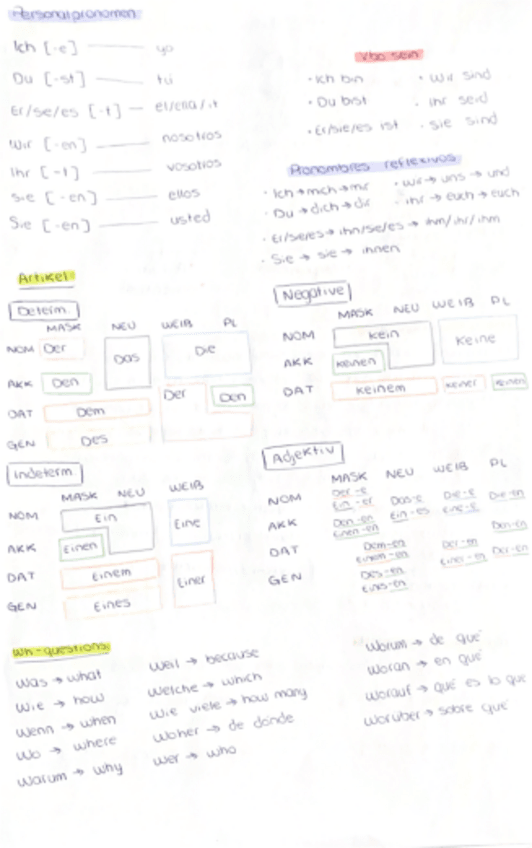 Personalpronomen
Ich [-e] — yo
Du [-st] — tú
Er/se/es [-t] — el/ella/it
Wir [-en] — nosotros
Ihr [-t] — vosotros
Sie [-en] — ellos
Sie [-en] — usted
Vbo sein
· Ich bin · Wir sind
· Du bist · Ihr seid
· Er/sie/es ist · sie sind
Pronombres reflexivos
· Ich → mich → mir · Wir → uns → und
· Du → dich → dir · ihr → euch → euch
· Er/se/es → ihn/se/es → ihm/ihr/ihm
· Sie → sie → ihnen
Artikel
Determ.
MASK NEU WEIB PL
NOM Der Das Die
AKK Den
DAT Dem Der Den
GEN Des
Negative
MASK NEU WEIB PL
NOM kein Keine
AKK keinen
DAT keinem keiner keinen
Indeterm
MASK NEU WEIB
NOM Ein Eine
AKK Einen
DAT Einem Einer
GEN Eines
Adjektiv
MASK NEU WEIB PL
NOM Der-e Das-e Die-e Die-en
Ein-er Ein-es Eine-e
AKK Den-en
Einen-en
DAT Dem-en Der-en Den-en
Einem-en Einer-en Der-en
GEN Des-en
Eines-en
Wh-questions
Was → what
Wie → how
Wenn → when
Wo → where
Warum → why
Weil → because
Welche → which
Wie viele → how many
Woher → de donde
Wer → who
Worum → de qué
Woran → en qué
Worauf → qué es lo que
Worüber → sobre qué